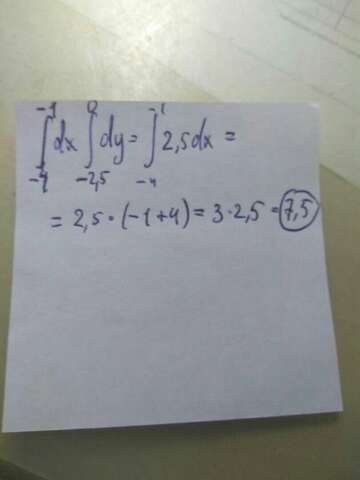 ∫_{-4}^{-1} dx ∫_{-2,5}^{0} dy = ∫_{-4}^{-1} 2,5dx =
= 2,5 · (-1+4) = 3 · 2,5 = 7,5